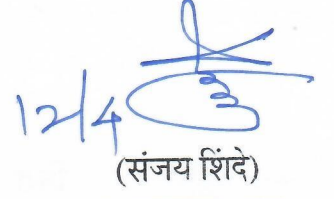 12/4
(संजय शिंदे)